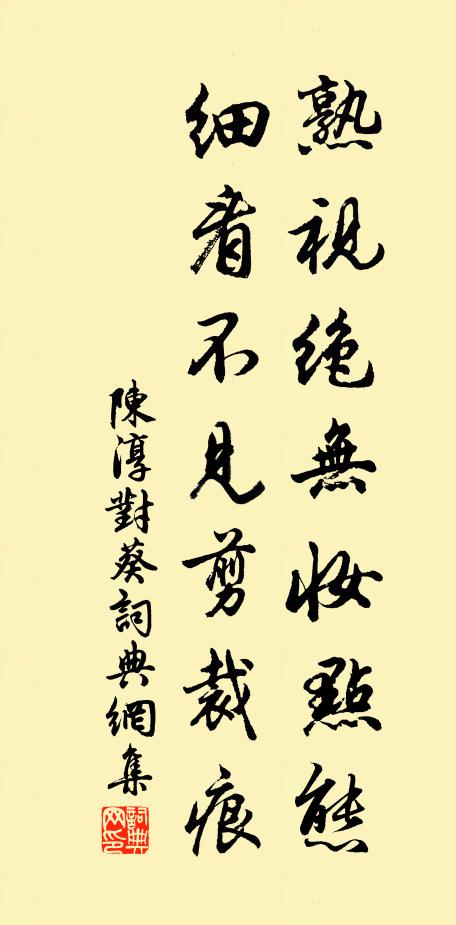 熟視絶無妝點態
細看不見剪裁痕
陳淳對葵詞典網集
詞典網印